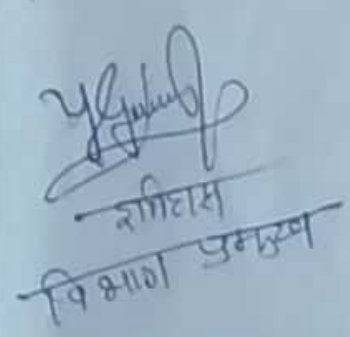 इतिहास
विभाग प्रमुख